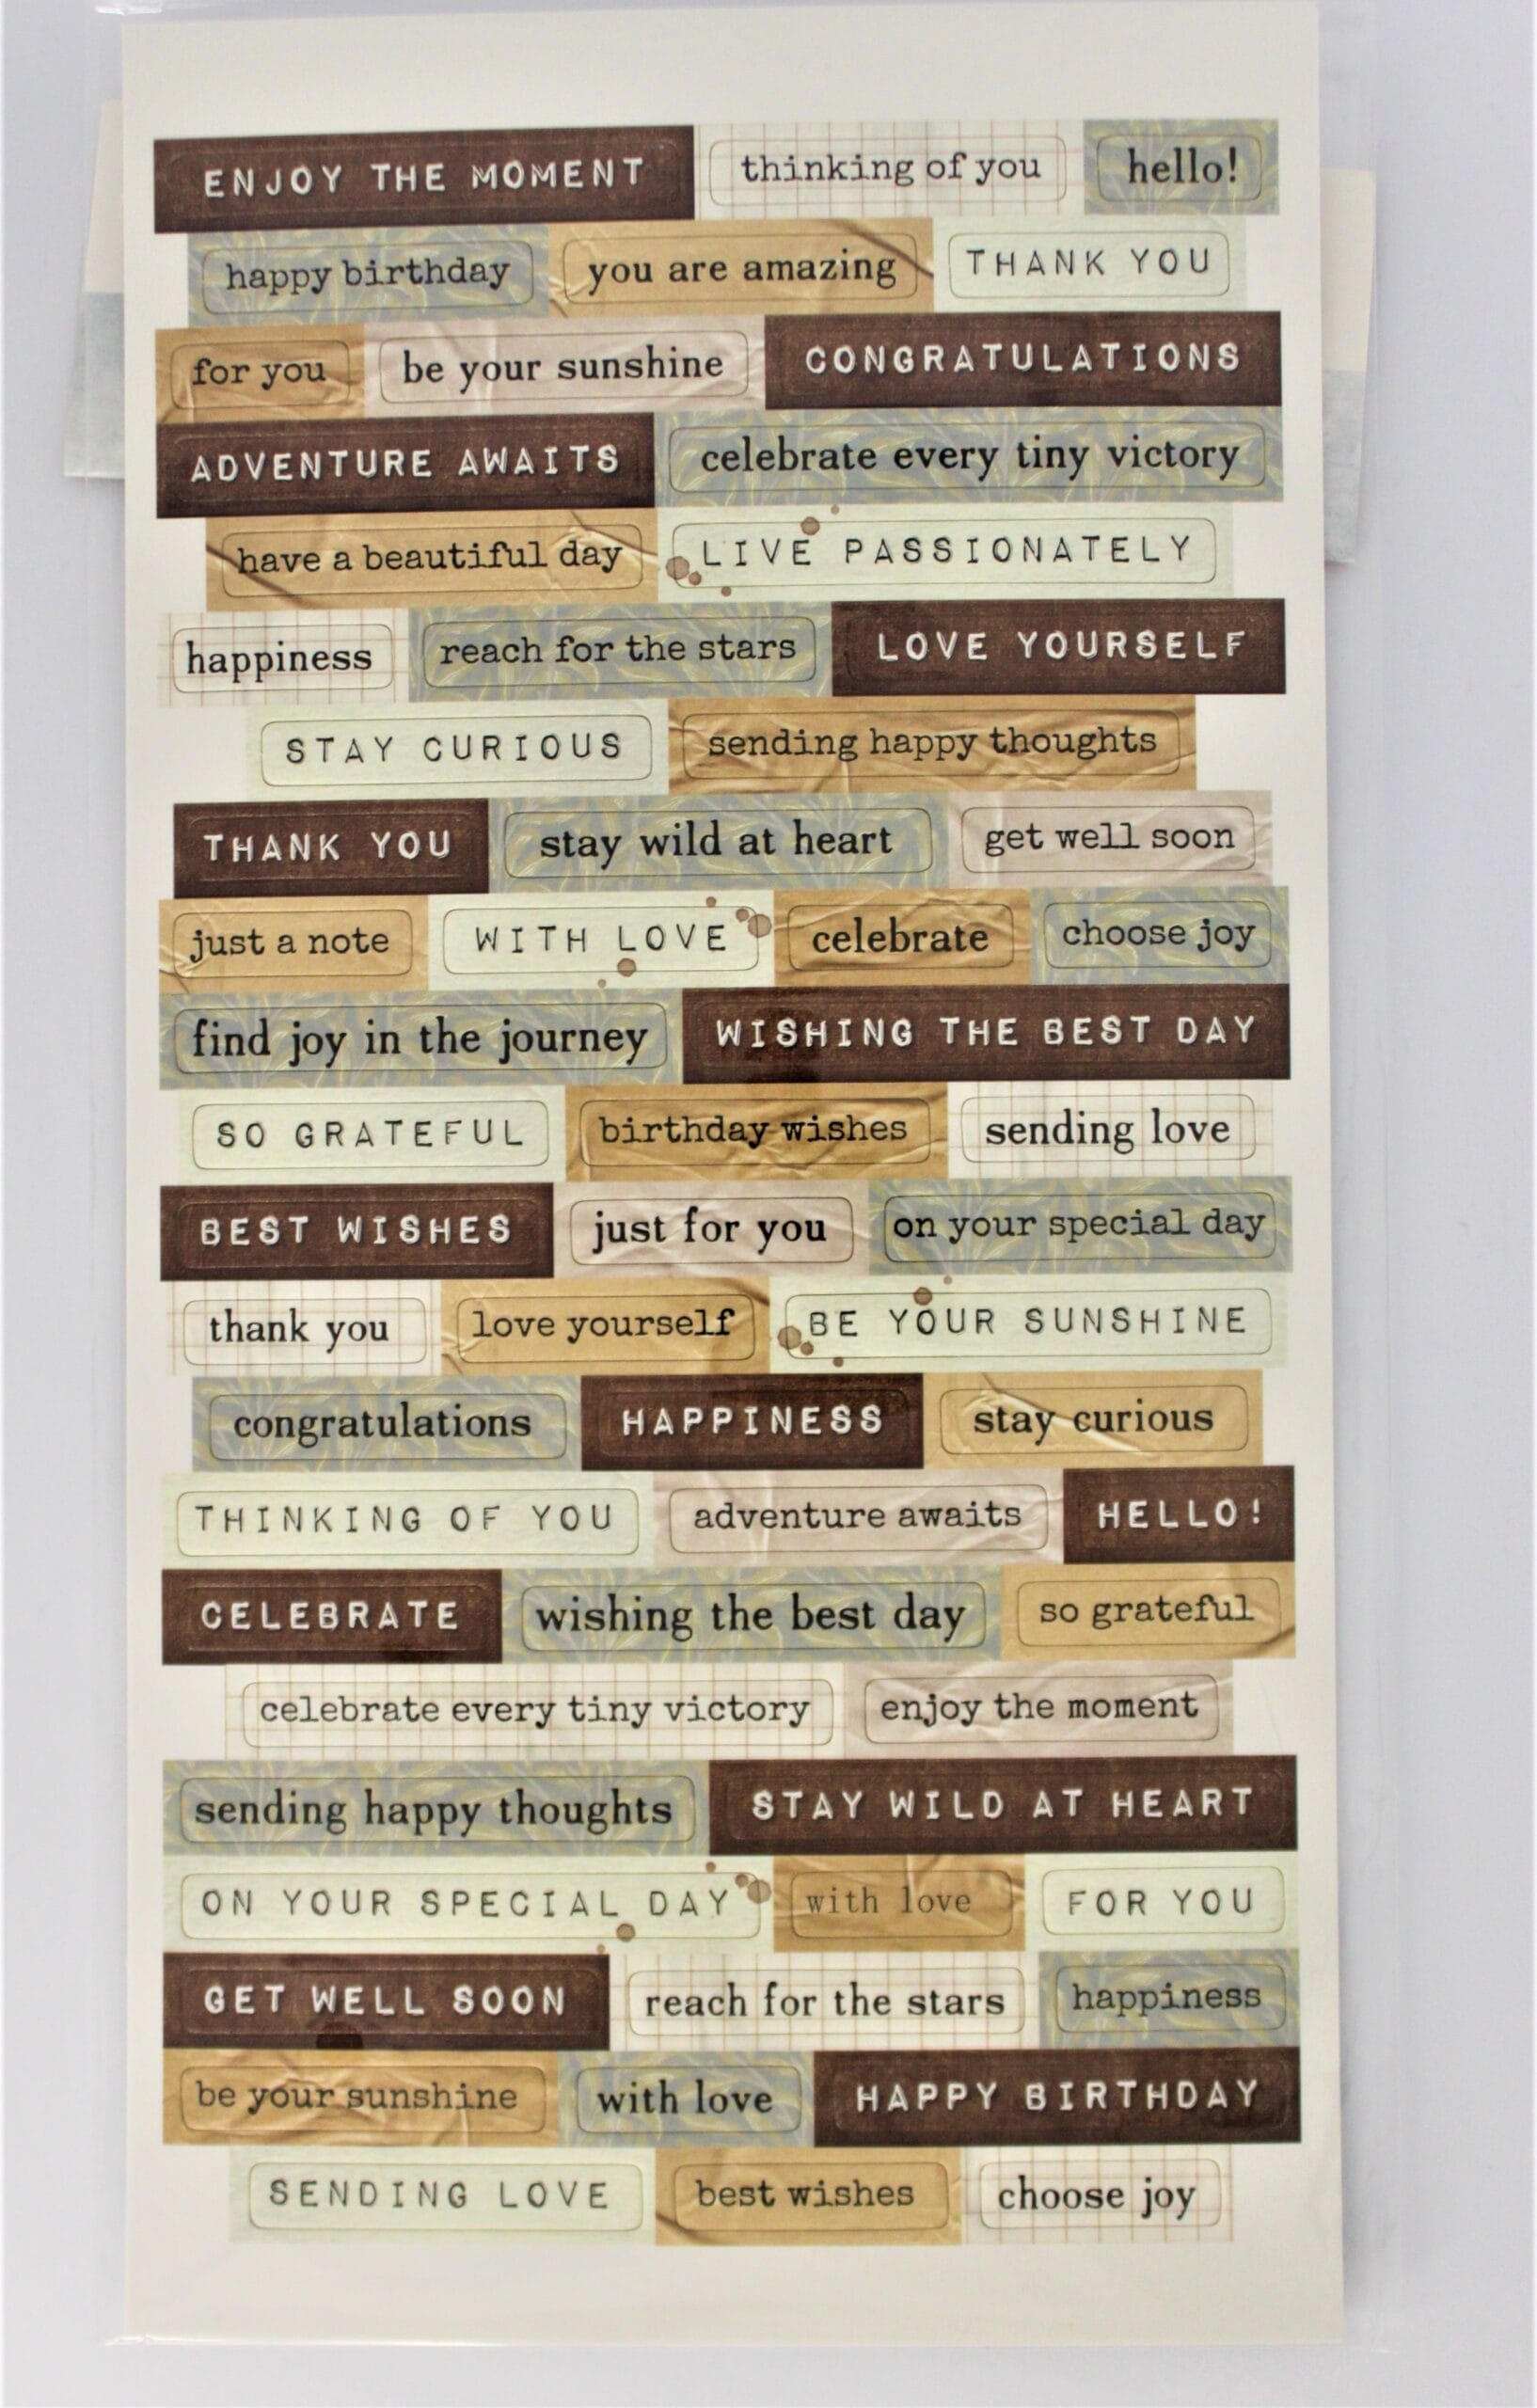 ENJOY THE MOMENT thinking of you hello!
happy birthday you are amazing THANK YOU
for you be your sunshine CONGRATULATIONS
ADVENTURE AWAITS celebrate every tiny victory
have a beautiful day LIVE PASSIONATELY
happiness reach for the stars LOVE YOURSELF
STAY CURIOUS sending happy thoughts
THANK YOU stay wild at heart get well soon
just a note WITH LOVE celebrate choose joy
find joy in the journey WISHING THE BEST DAY
SO GRATEFUL birthday wishes sending love
BEST WISHES just for you on your special day
thank you love yourself BE YOUR SUNSHINE
congratulations HAPPINESS stay curious
THINKING OF YOU adventure awaits HELLO!
CELEBRATE wishing the best day so grateful
celebrate every tiny victory enjoy the moment
sending happy thoughts STAY WILD AT HEART
ON YOUR SPECIAL DAY with love FOR YOU
GET WELL SOON reach for the stars happiness
be your sunshine with love HAPPY BIRTHDAY
SENDING LOVE best wishes choose joy